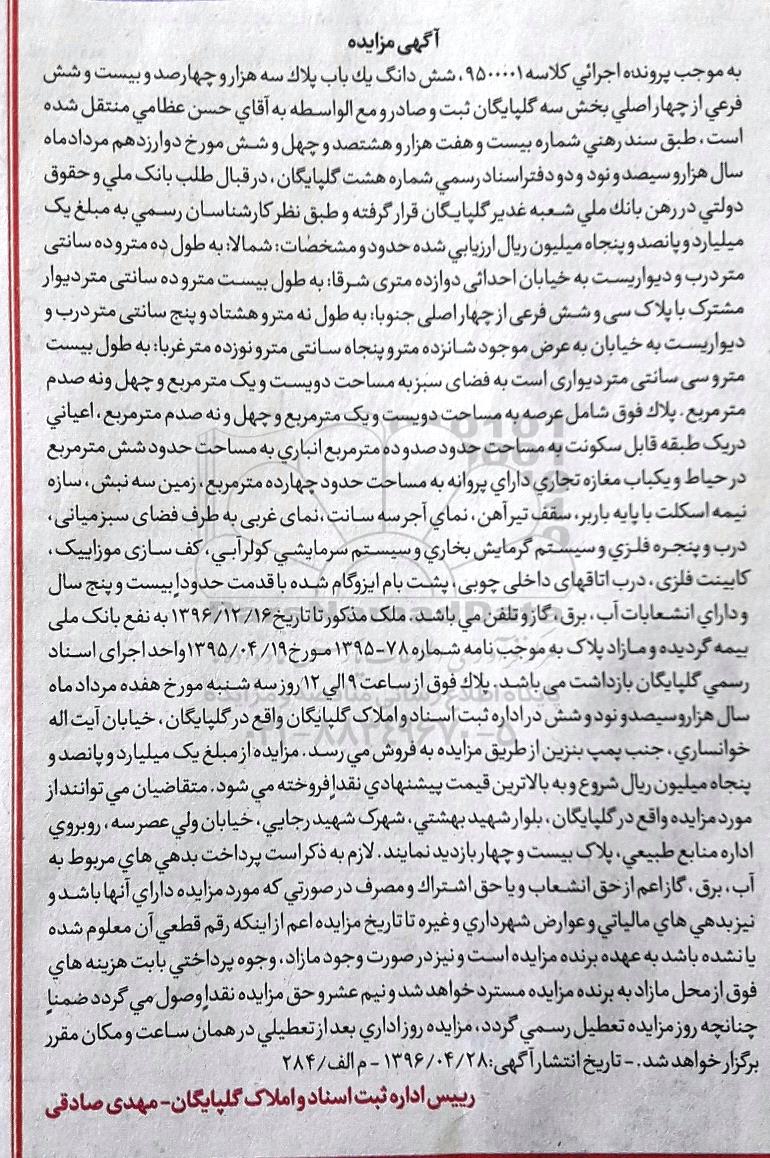 آگهی مزایده
به موجب پرونده اجرائي كلاسه ۹۵۰۰۰۰۱، شش دانگ يك باب پلاك سه هزار و چهارصد و بيست و شش
فرعي از چهار اصلي بخش سه گلپايگان ثبت و صادر و مع الواسطه به آقاي حسن عظامي منتقل شده
است، طبق سند رهني شماره بيست و هفت هزار و هشتصد و چهل و شش مورخ دوازدهم مردادماه
سال هزار و سيصد و نود و دو دفتر اسناد رسمي شماره هشت گلپايگان، در قبال طلب بانک ملي و حقوق
دولتي در رهن بانك ملي شعبه غدير گلپايگان قرار گرفته و طبق نظر كارشناسان رسمي به مبلغ يک
ميليارد و پانصد و پنجاه ميليون ريال ارزيابي شده حدود و مشخصات: شمالا: به طول ده متر و ده سانتی
متر درب و ديواريست به خيابان احداثی دوازده متری شرقا: به طول بيست متر و ده سانتی متر ديوار
مشترک با پلاک سی و شش فرعی از چهار اصلی جنوبا: به طول نه متر و هشتاد و پنج سانتی متر درب و
ديواريست به خيابان به عرض موجود شانزده متر و پنجاه سانتی متر و نوزده متر غربا: به طول بيست
متر و سی سانتی متر ديواری است به فضای سبز به مساحت دويست و يک متر مربع و چهل ونه صدم
متر مربع. پلاك فوق شامل عرصه به مساحت دويست و يک متر مربع و چهل و نه صدم مترمربع، اعياني
در يک طبقه قابل سكونت به مساحت حدود صد و ده مترمربع انباري به مساحت حدود شش مترمربع
در حياط و يكباب مغازه تجاري داراي پروانه به مساحت حدود چهارده مترمربع، زمين سه نبش، سازه
نيمه اسكلت با پايه باربر، سقف تيرآهن، نماي آجر سه سانت، نمای غربی به طرف فضای سبز ميانی،
درب و پنجره فلزي و سيستم گرمايش بخاري و سيستم سرمايشي كولر آبي، كف سازی موزاييک،
كابينت فلزی، درب اتاقهای داخلی چوبی، پشت بام ايزوگام شده با قدمت حدوداً بيست و پنج سال
و داراي انشعابات آب، برق، گاز و تلفن مي باشد. ملک مذكور تا تاريخ ۱۳۹۶/۱۲/۱۶ به نفع بانک ملی
بيمه گرديده و مازاد پلاک به موجب نامه شماره ۷۸-۱۳۹۵ مورخ ۱۳۹۵/۰۴/۱۹ واحد اجرای اسناد
رسمي گلپايگان بازداشت می باشد. پلاك فوق از ساعت ۹ الي ۱۲ روز سه شنبه مورخ هفده مرداد ماه
سال هزار و سيصد و نود و شش در اداره ثبت اسناد و املاک گلپايگان واقع در گلپايگان، خيابان آيت اله
خوانساري، جنب پمپ بنزين از طريق مزايده به فروش مي رسد. مزايده از مبلغ يک ميليارد و پانصد و
پنجاه ميليون ريال شروع و به بالاترين قيمت پيشنهادي نقداً فروخته مي شود. متقاضيان مي توانند از
مورد مزايده واقع در گلپايگان، بلوار شهيد بهشتي، شهرک شهيد رجايي، خيابان ولي عصر سه، روبروي
اداره منابع طبيعي، پلاک بيست و چهار بازديد نمايند. لازم به ذكر است پرداخت بدهي هاي مربوط به
آب، برق، گاز اعم از حق انشعاب و يا حق اشتراك و مصرف در صورتي كه مورد مزايده داراي آنها باشد و
نيز بدهي هاي مالياتي و عوارض شهرداري و غيره تا تاريخ مزايده اعم از اينكه رقم قطعي آن معلوم شده
يا نشده باشد به عهده برنده مزايده است و نيز در صورت وجود مازاد، وجوه پرداختي بابت هزينه هاي
فوق از محل مازاد به برنده مزايده مسترد خواهد شد و نيم عشر و حق مزايده نقداً وصول مي گردد ضمناً
چنانچه روز مزايده تعطيل رسمي گردد، مزايده روز اداري بعد از تعطيلي در همان ساعت و مكان مقرر
برگزار خواهد شد. - تاريخ انتشار آگهی: ۱۳۹۶/۰۴/۲۸ - م الف/۲۸۴
رییس اداره ثبت اسناد و املاک گلپایگان- مهدی صادقی
پایگاه اطلاع رسانی مناقصه و مزایده
۰۲۱-۸۸۳۴۹۶۷۰-۵